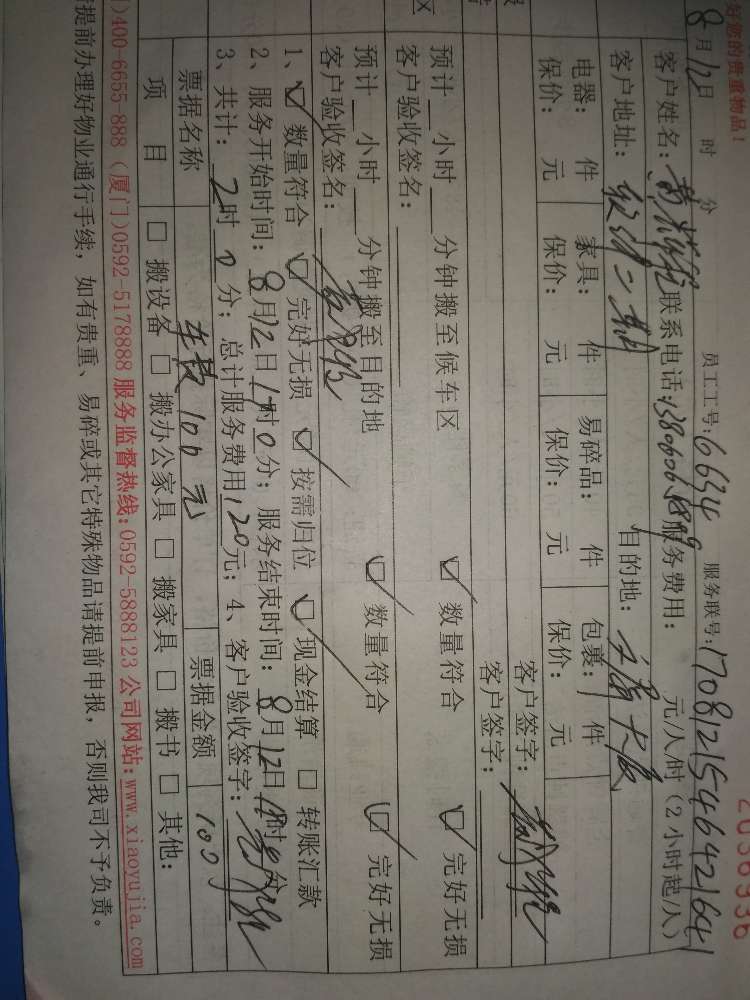 好您的贵重物品！
2036936
8月12日 时 分 员工工号:66534 服务联号:1708121546421641
客户姓名: 联系电话:13806065889 服务费用: 元/人/时（2小时起/人）
客户地址: 二期 目的地: 大厦
电器: 件 家具: 件 易碎品: 件 包裹: 件 客户签字:
保价: 元 保价: 元 保价: 元 保价: 元 客户签字:
区
预计__小时__分钟搬至候车区 数量符合 完好无损
客户验收签名:
预计__小时__分钟搬至目的地 数量符合 完好无损
客户验收签名:
1、 数量符合 完好无损 按需归位 现金结算 □ 转账汇款
2、服务开始时间: 8月12日17时0分；服务结束时间: 8月12日 时 分
3、共计: 2时0分；总计服务费用120元；4、客户验收签字:
票据名称 车费100元 票据金额 100
项 目 □ 搬设备 □ 搬办公家具 □ 搬家具 □ 搬书 □ 其他:
)400-6655-888（厦门)0592-5178888 服务监督热线:0592-5888123 公司网站:www.xiaoyujia.com
提前办理好物业通行手续，如有贵重、易碎或其它特殊物品请提前申报，否则我司不予负责。